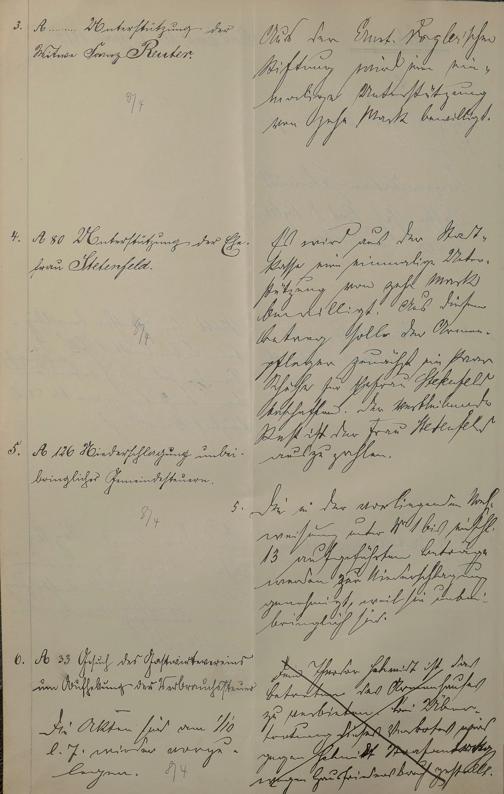 3. A ...... Unterstützung der
Witwe Franz Reuter.
8/4
Aus der Ernst. Vogleischen
Stiftung wird eine ein-
malige Unterstützung
von zehn Mark bewilligt.
4. A 80 Unterstützung der Ehe-
frau Stetenfeld.
8/4
Es wird aus der Stadt-
kasse eine einmalige Unter-
stützung von zehn Mark
bewilligt. Aus diesem
Betrag solle der Armen-
pfleger zunächst ein Paar
Schuhe für Ehefrau Stetenfeld
beschaffen. Der verbleibende
Rest ist der Frau Stetenfeld
auszuzahlen.
5. A 126 Niederschlagung unbei-
bringlicher Gemeindesteuern.
8/4
5. Die in der vorliegenden Nach-
weisung unter No 1 bis einschl.
13 aufgeführten Beträge
werden zur Niederschlagung
genehmigt, weil sie unbei-
bringlich sind.
6. A 33 Gesuch des Gastwirtevereins
um Aufhebung der Verbrauchssteuer
Die Akten sind am 1/10
l. J. wieder vorzu-
legen. 8/4
Dem Theodor Schmidt ist das
Betreten des Armenhauses
zu verbieten. Bei Über-
tretung dieses Verbotes wird
gegen Schmidt Strafantrag
wegen Hausfriedensbruch gestellt.